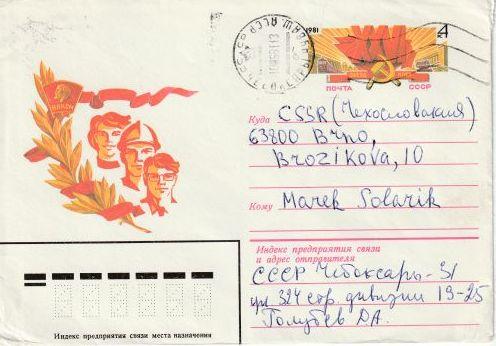 1981
4
К
ПОЧТА СССР
ВЛКСМ
Куда CSSR (Чехословакия)
63800 Brno,
Brozikova, 10
Кому Marek Solarik
Индекс предприятия связи
и адрес отправителя
СССР Чебоксары-31
ул 324 стр. дивизии 19-25
Голубев Д.А.
Индекс предприятия связи места назначения